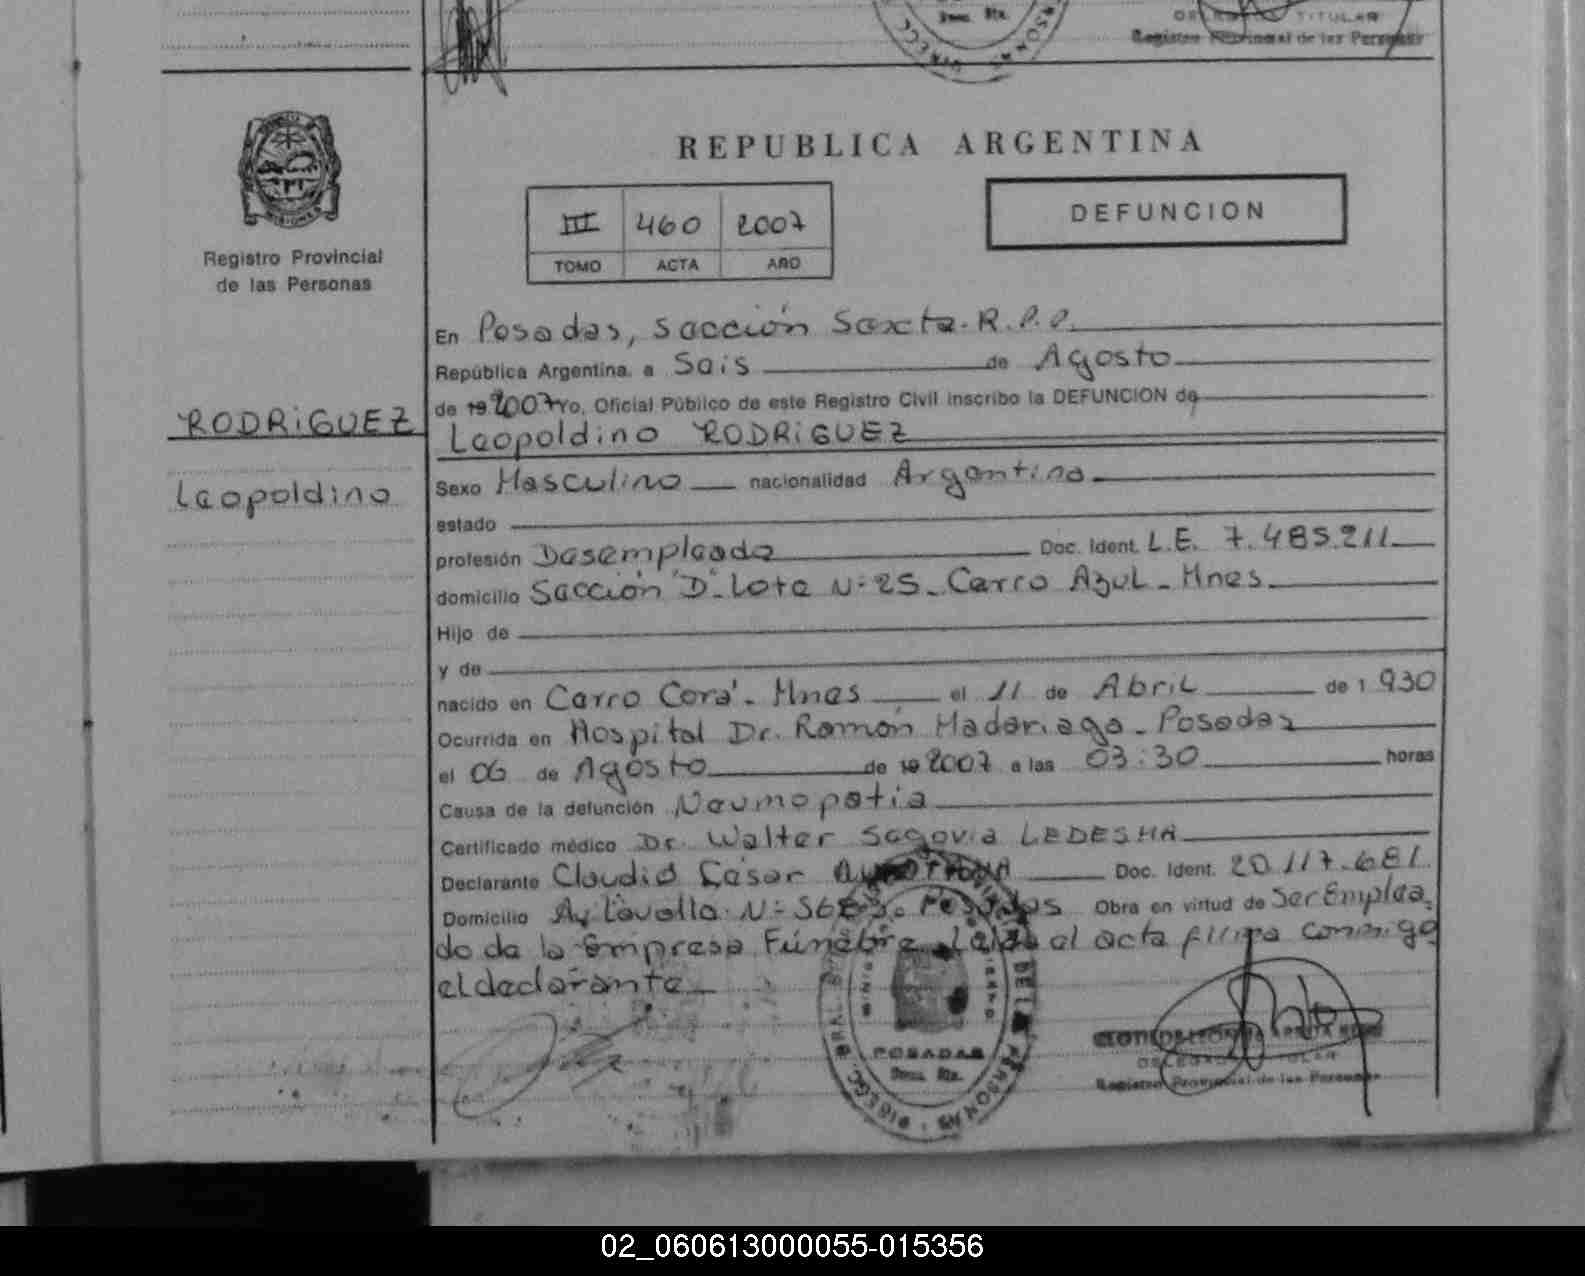 Secc. 6ta.
DELEGADA TITULAR
Registro Provincial de las Personas
REPUBLICA ARGENTINA
III 460 2007
TOMO ACTA AÑO
DEFUNCION
Registro Provincial
de las Personas
En Posadas, Sección Sexta. R.P.P.
República Argentina, a Seis de Agosto
de 19 2007 Yo, Oficial Público de este Registro Civil inscribo la DEFUNCION de
RODRIGUEZ
Leopoldino RODRIGUEZ
Leopoldino
Sexo Masculino nacionalidad Argentina
estado
profesión Desempleado Doc. Ident. L.E. 7.485.211
domicilio Sección "D" Lote N=25. Cerro Azul - Mnes.
Hijo de
y de
nacido en Cerro Corá - Mnes el 11 de Abril de 1 930
Ocurrida en Hospital Dr. Ramón Madariaga - Posadas
el 06 de Agosto de 19 2007 a las 03:30 horas
Causa de la defunción Neumopatia
Certificado médico Dr. Walter Segovia LEDESMA
Declarante Claudio César Doc. Ident. 20.117.681
Domicilio Av Lavalle N= Posadas Obra en virtud de Ser Emplea
do de la Empresa Fúnebre. Leída el acta firma conmigo
el declarante
POSADAS
Secc. 6ta.
DELEGADA TITULAR
Registro Provincial de las Personas
02_060613000055-015356